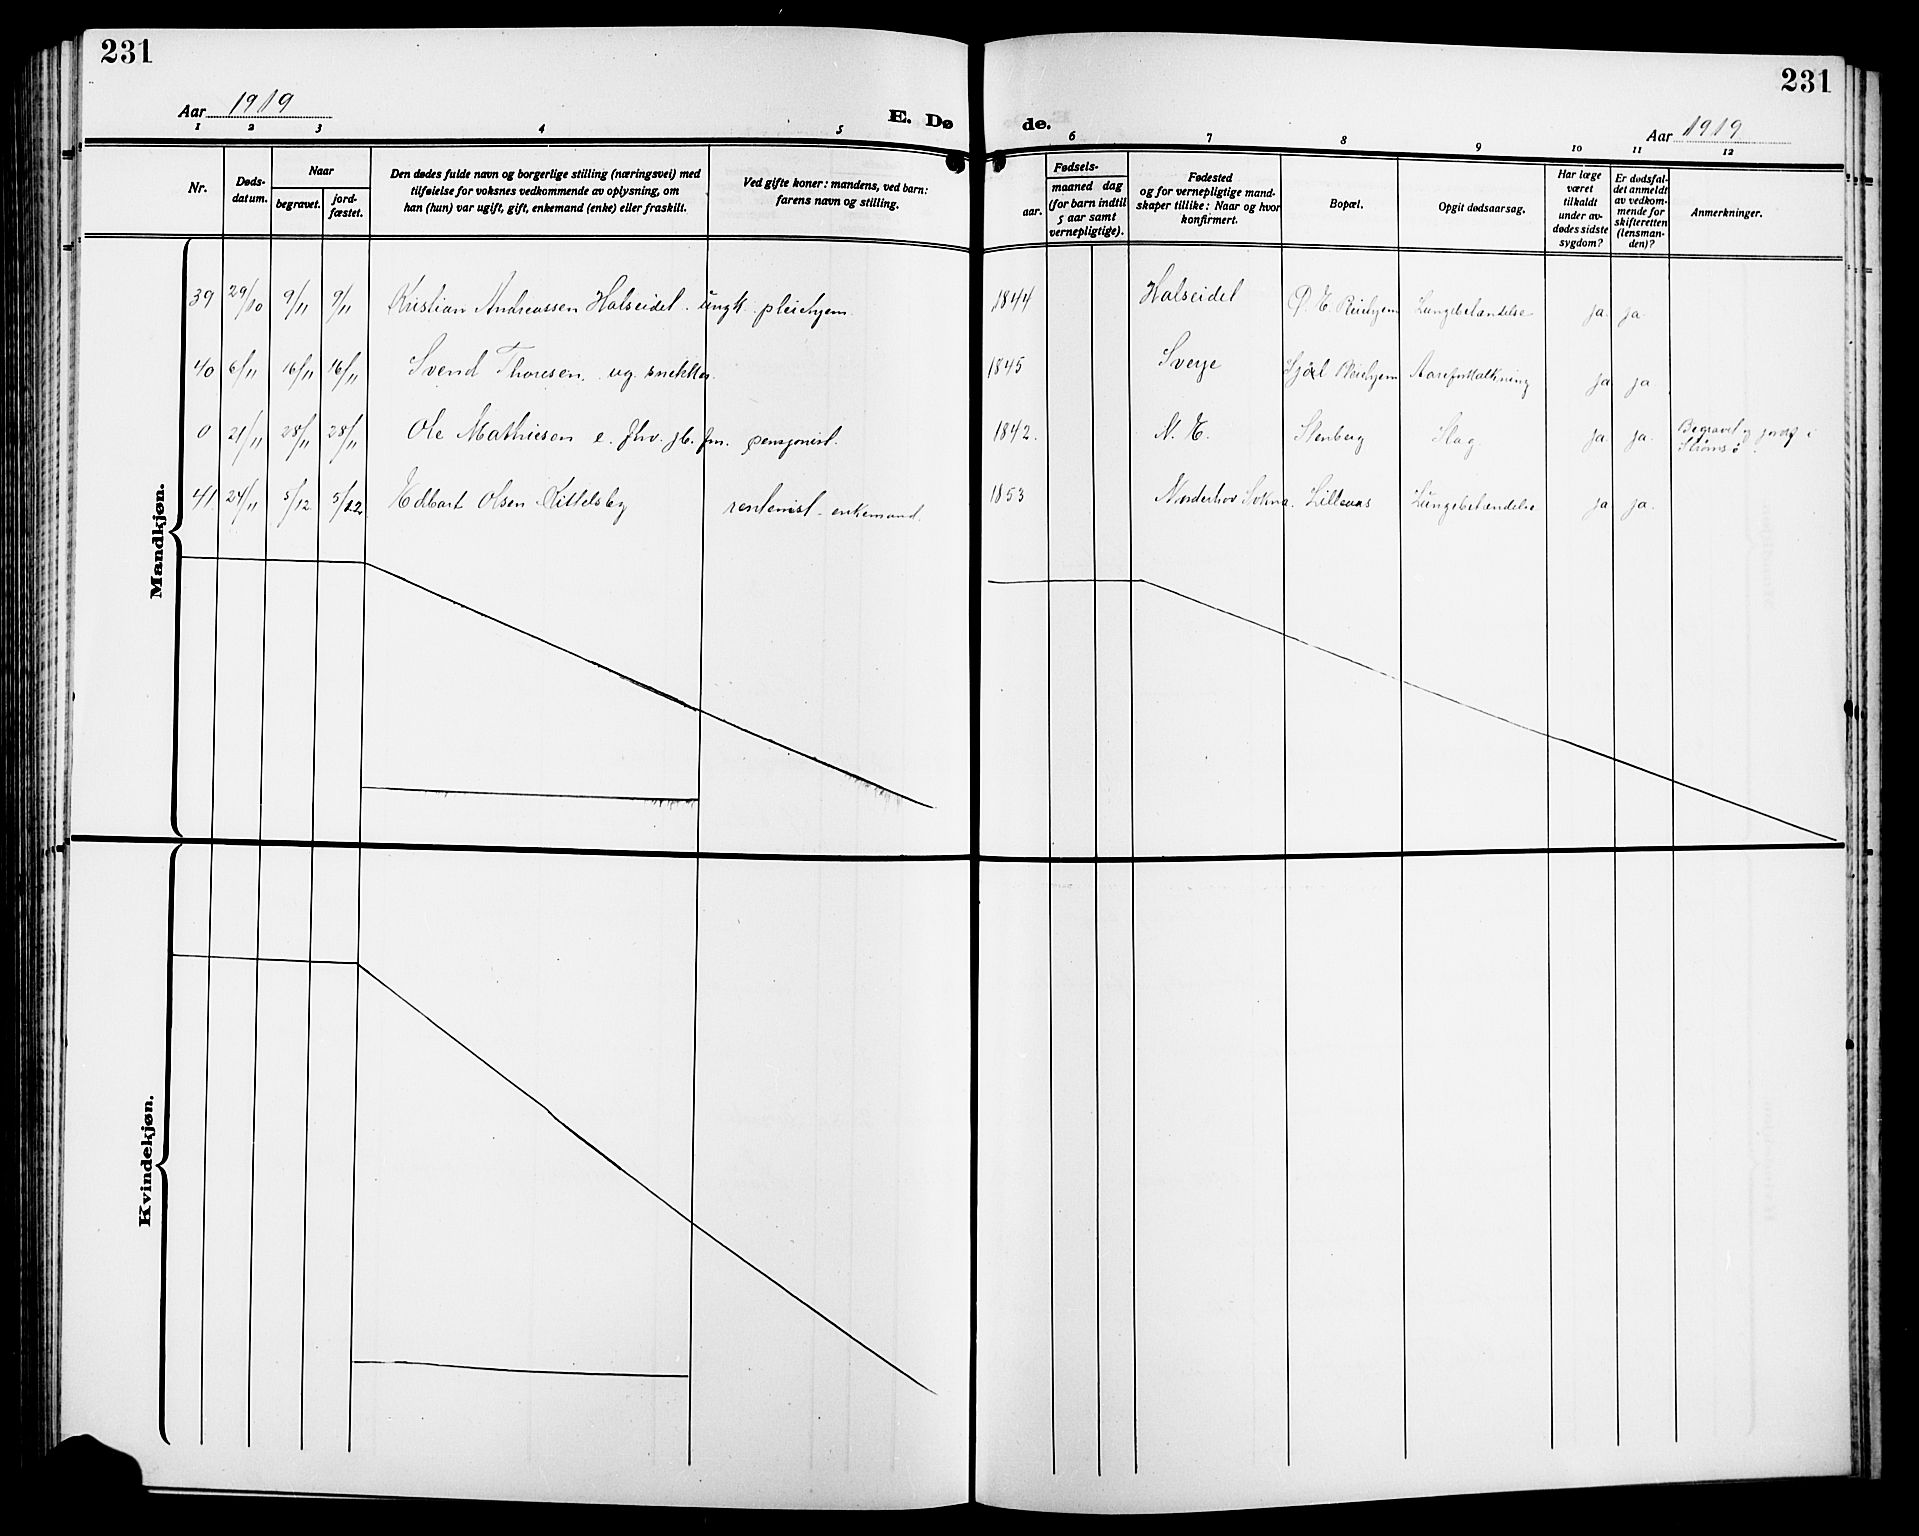 231
231
Aar 1919
E. Dø
de.
Aar 1919
1 2 3 4 5 6 7 8 9 10 11 12
Nr.
Døds-
datum.
Naar
begravet.
jord-
fæstet.
Den dødes fulde navn og borgerlige stilling (næringsvei) med
tilføielse for voksnes vedkommende av oplysning, om
han (hun) var ugift, gift, enkemand (enke) eller fraskilt.
Ved gifte koner: mandens, ved barn:
farens navn og stilling.
Fødsels-
aar.
maaned dag
(for barn indtil
5 aar samt
vernepligtige).
Fødested
og for vernepligtige mand-
skaper tillike: Naar og hvor
konfirmert.
Bopæl.
Opgit dødsaarsag.
Har læge
været
tilkaldt
under av-
dødes sidste
sygdom?
Er dødsfal-
det anmeldt
av vedkom-
mende for
skifteretten
(lensman-
den)?
Anmerkninger.
Mandkjøn.
39 29/10 9/11 9/11 Kristian Andreassen Halseidet. ungk. pleiehjem. 1844 Halseidet Ø. E. Pleiehjem Lungebetændelse ja ja
40 6/11 16/11 16/11 Svend Thoresen. ug. snekker. 1845 Sverge Pleiehjem Aareforkalkning ja ja
0 21/11 28/11 28/11 Ole Mathiesen e. fhv. jb. fm. pensjonist. 1842. N. E. Stenberg Slag ja ja. Begravet og jordf i
Strømsø.
41. 24/11 5/12 5/12 Edbart Olsen Kittelsby rentenist. enkemand. 1853 Norderhov Sokna. Lilleaas Lungebetændelse ja ja.
Kvindekjøn.